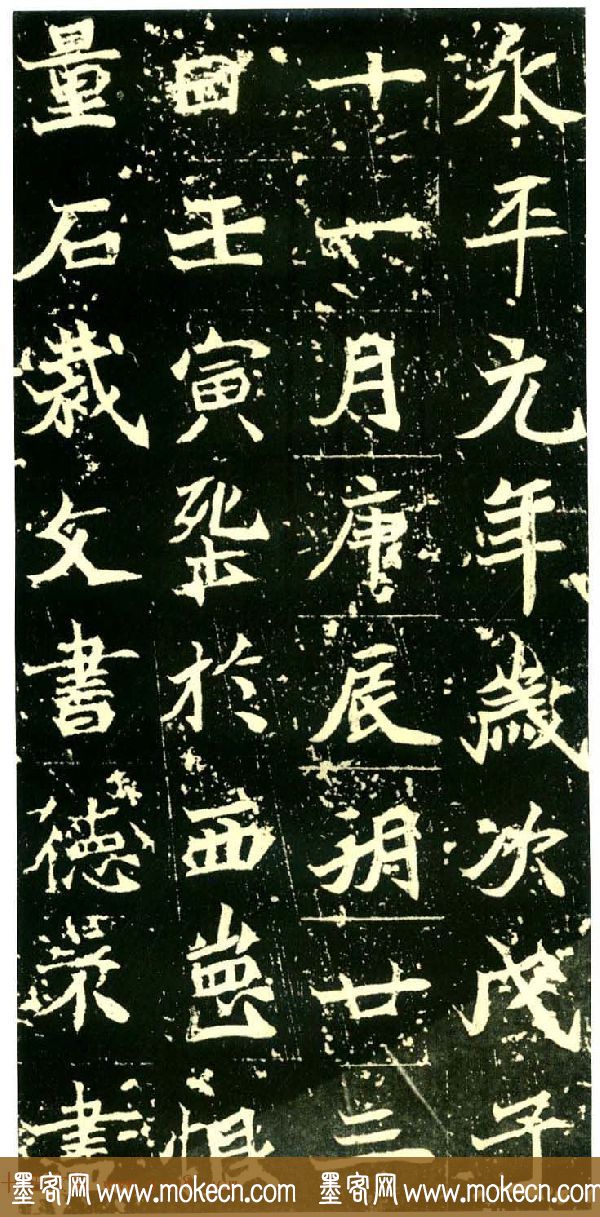 永平元年歲次戊子
十一月庚辰朔廿三
日壬寅於西恨
量石裁文書德書
墨客网 www.mokecn.com 墨客网 www.mokecn.com